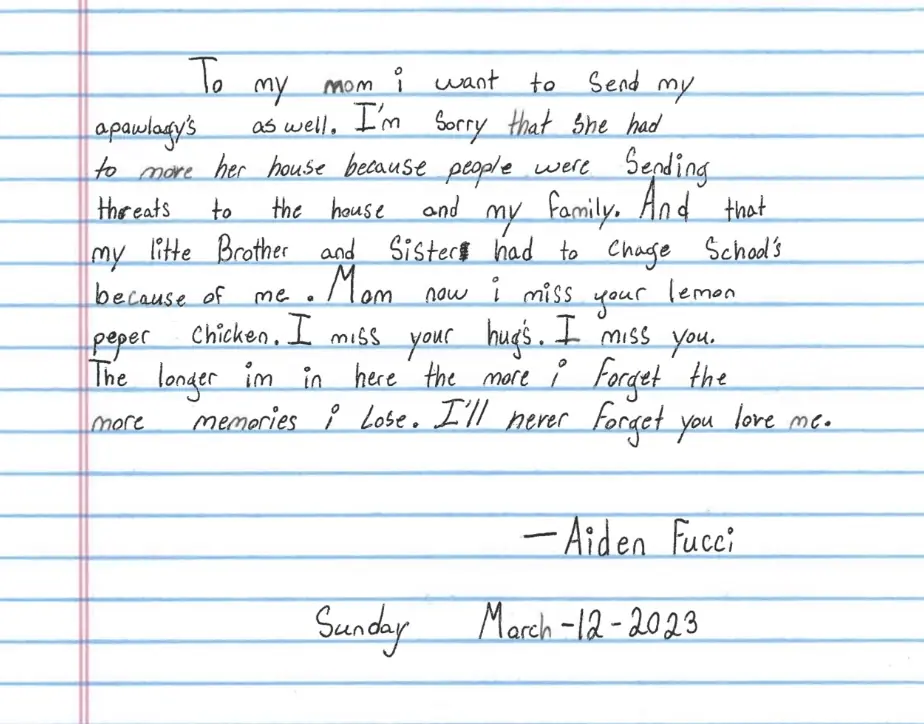 To my mom i want to Send my
apawlagy's as well. I'm Sorry that She had
to more her house because people were Sending
threats to the house and my family. And that
my little Brother and Sister had to Chage School's
because of me. Mom now i miss your lemon
peper Chicken. I miss your hug's. I miss you.
The longer im in here the more i forget the
more memories i Lose. I'll never forget you love me.
—Aiden Fucci
Sunday March-12-2023